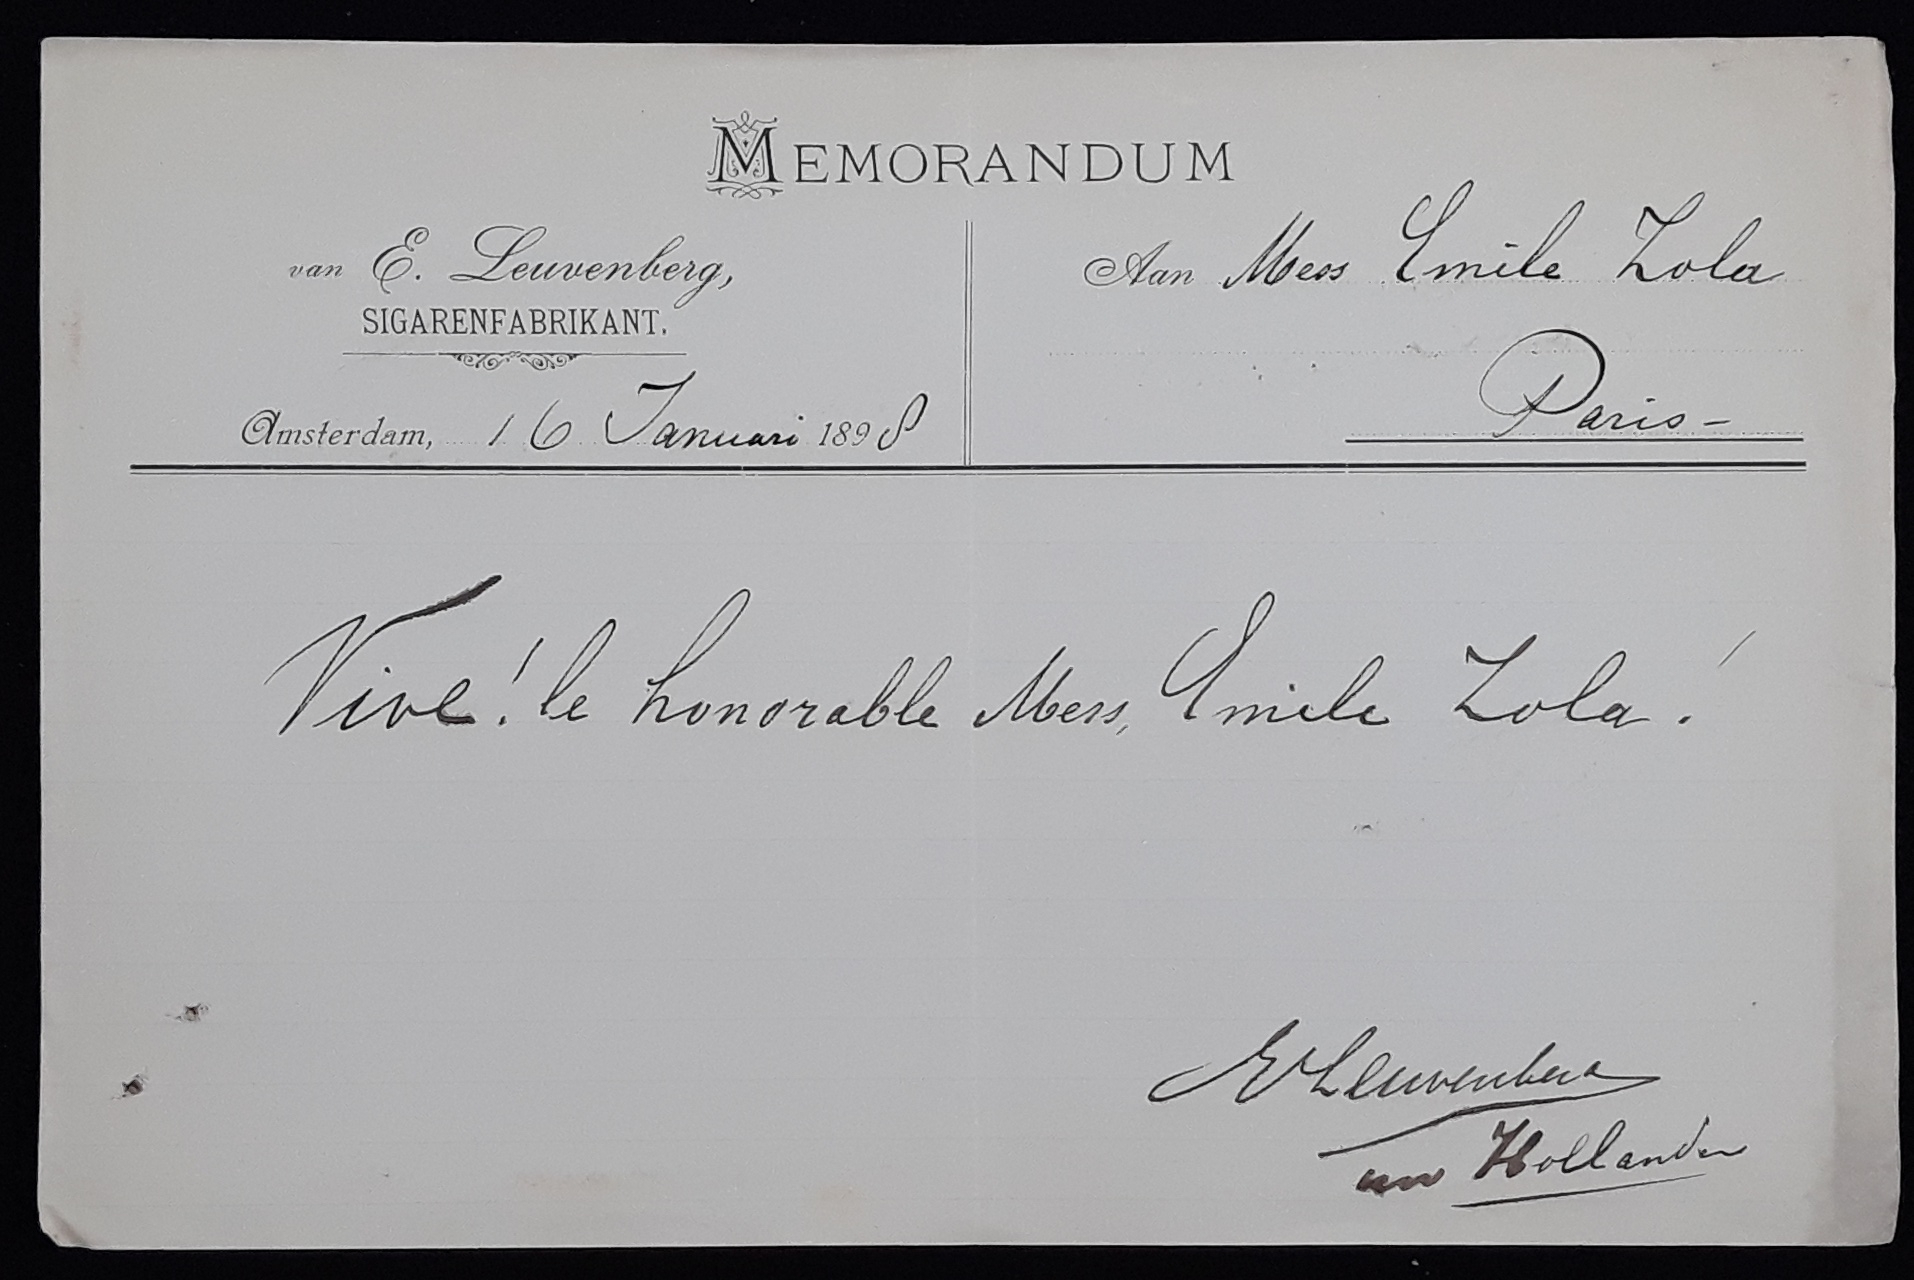 MEMORANDUM
van E. Leuvenberg,
SIGARENFABRIKANT.
Amsterdam, 16 Januari 1898
Aan Mess Emile Zola
Paris-
Vive! le honorable Mess, Emile Zola!
E Leuvenberg
un Hollander